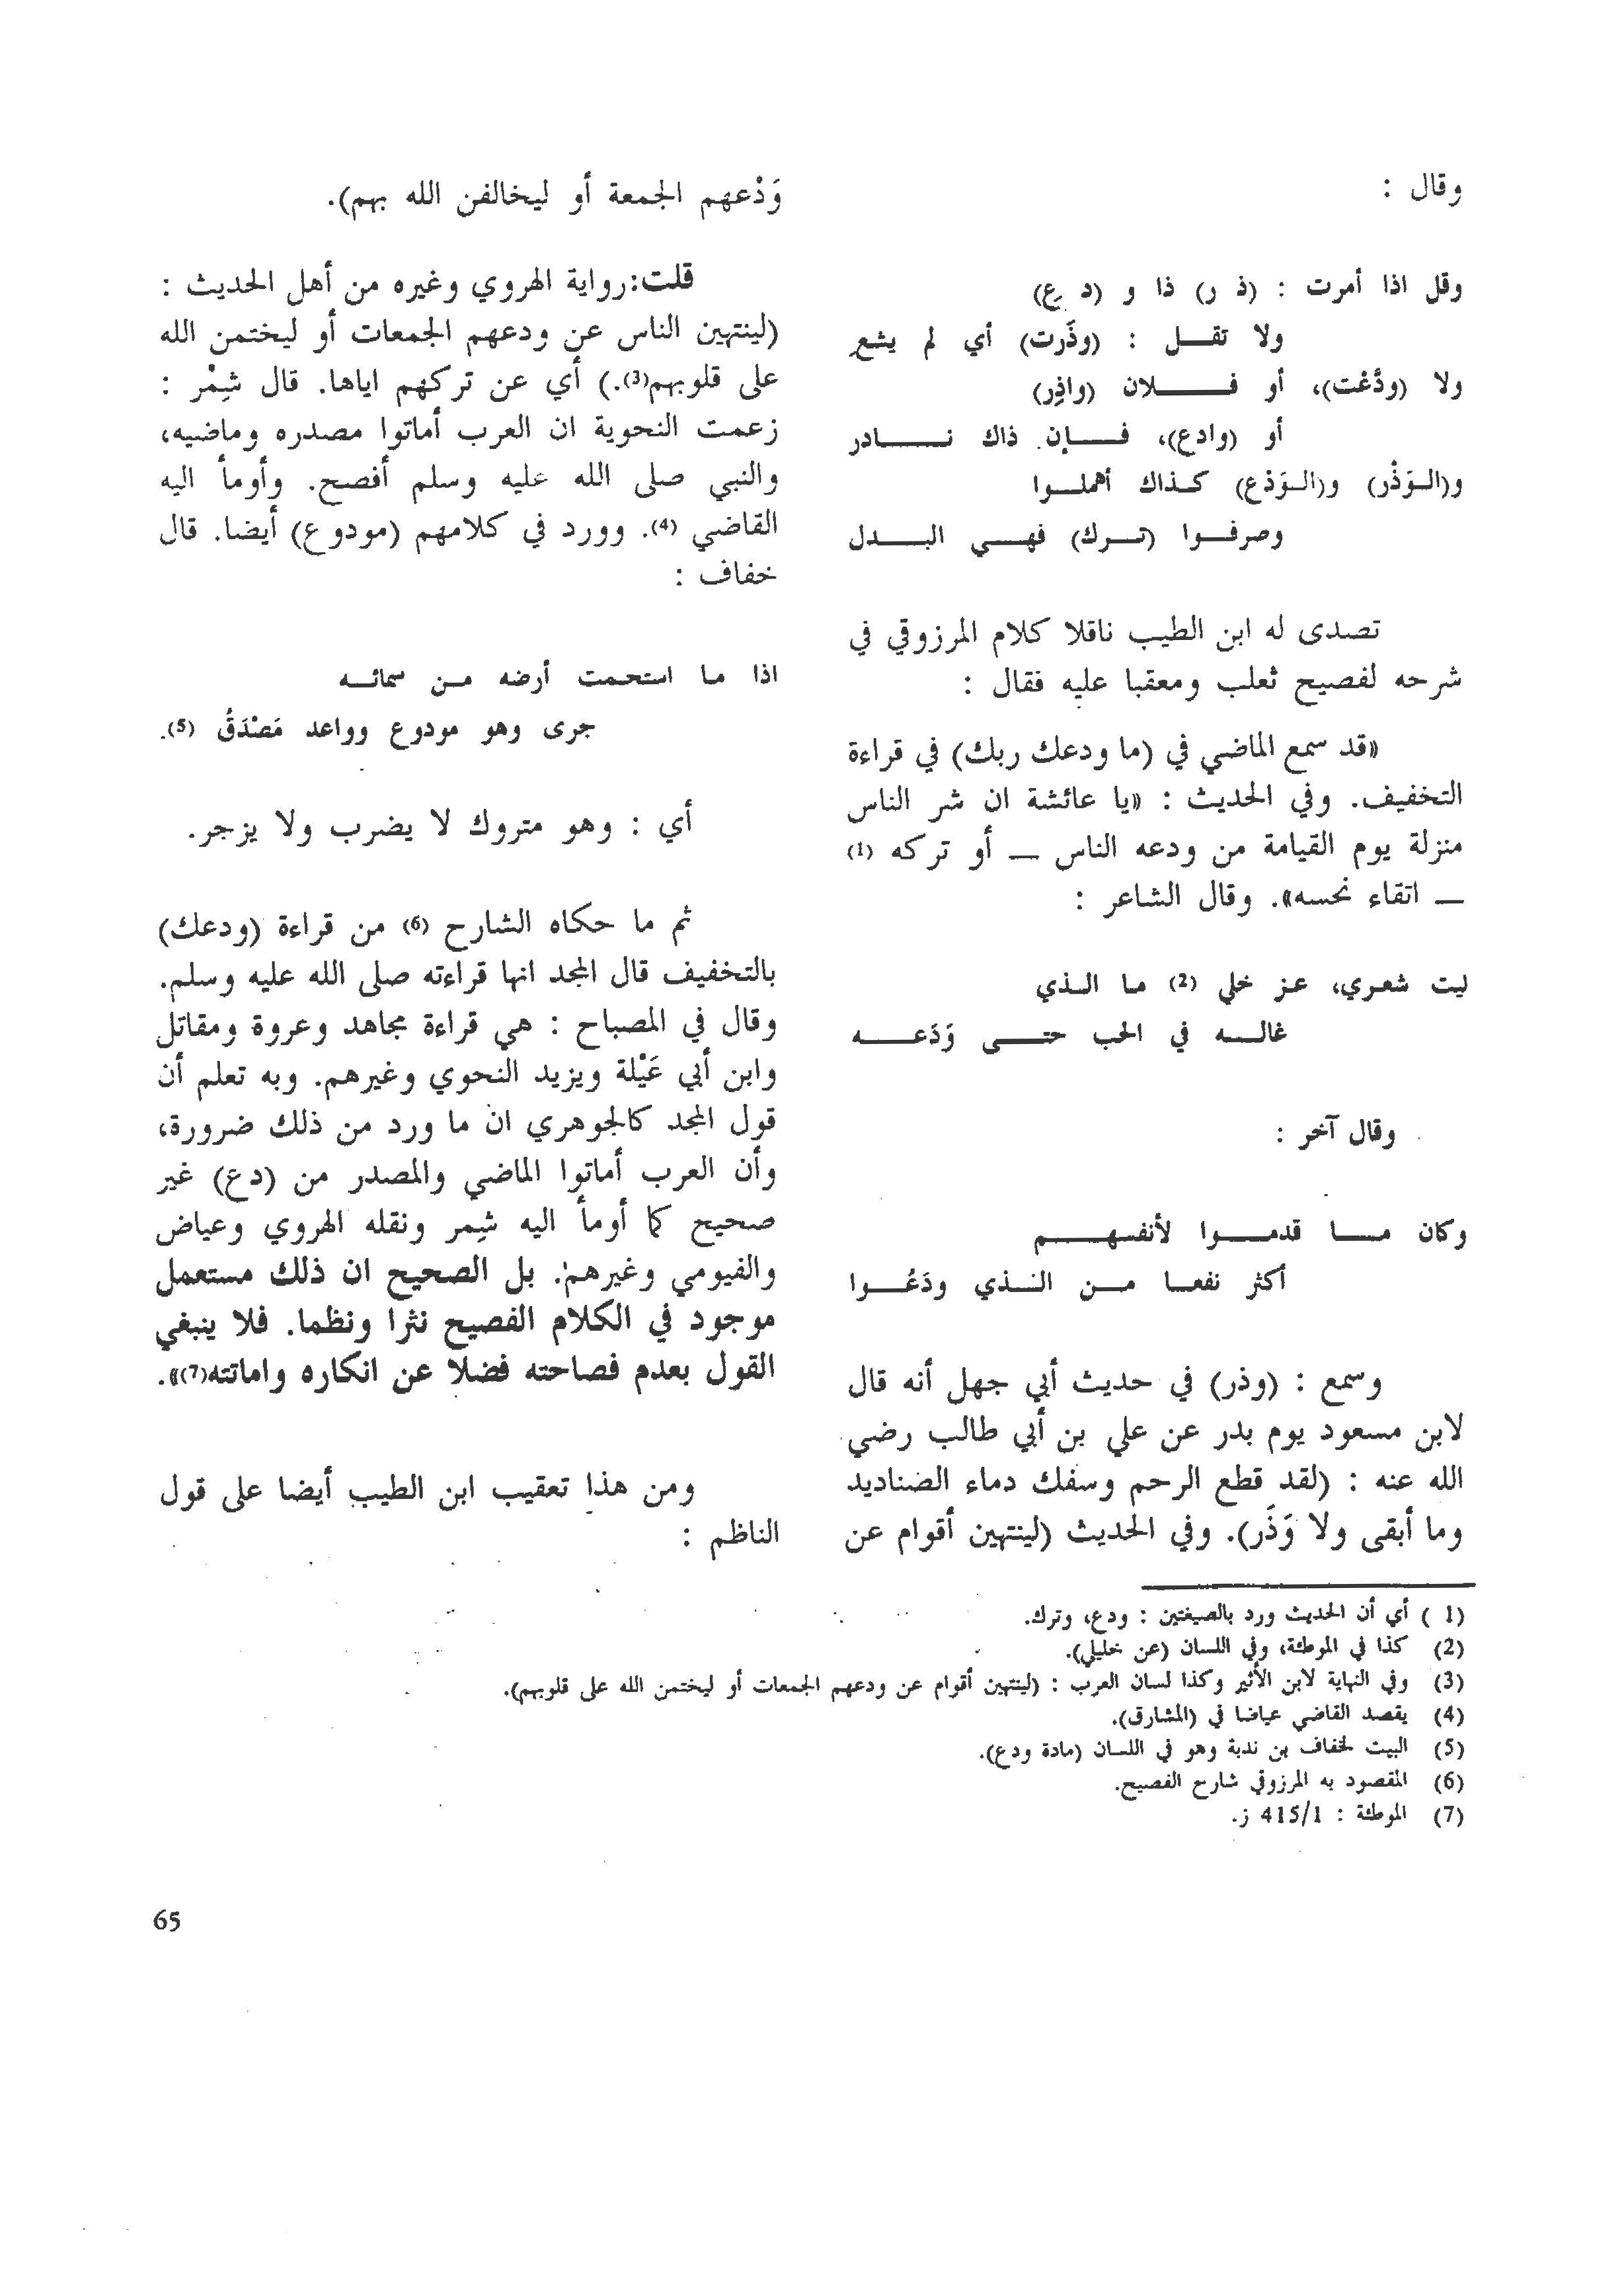 وقال :
وقل اذا أمرت : (ذ ر) ذا و (د ع)
ولا تقل : (وذَرت) أي لم يشع
ولا (ودَعْت)، أو فلان (واذِر)
أو (وادع)، فإن ذاك نادر
و(الوَذْر) و(الوَدْع) كذاك أهملوا
وصرفوا (ترك) فهي البدل
تصدى له ابن الطيب ناقلا كلام المرزوقي في
شرحه لفصيح ثعلب ومعقبا عليه فقال :
«قد سمع الماضي في (ما ودعك ربك) في قراءة
التخفيف. وفي الحديث : «يا عائشة ان شر الناس
منزلة يوم القيامة من ودعه الناس — أو تركه (1)
— اتقاء نحسه». وقال الشاعر :
ليت شعري، عز خلي (2) ما الذي
غاله في الحب حتى وَدَعه
وقال آخر :
وكان ما قدموا لأنفسهم
أكثر نفعا من الذي ودَعُوا
وسمع : (وذر) في حديث أبي جهل أنه قال
لابن مسعود يوم بدر عن علي بن أبي طالب رضي
الله عنه : (لقد قطع الرحم وسفك دماء الصناديد
وما أبقى ولا وَذَر). وفي الحديث (لينتهين أقوام عن
وَدْعهم الجمعة أو ليخالفن الله بهم).
قلت: رواية الهروي وغيره من أهل الحديث :
(لينتهين الناس عن ودعهم الجمعات أو ليختمن الله
على قلوبهم(3).) أي عن تركهم اياها. قال شِمْر :
زعمت النحوية ان العرب أماتوا مصدره وماضيه،
والنبي صلى الله عليه وسلم أفصح. وأومأ اليه
القاضي (4). وورد في كلامهم (مودوع) أيضا. قال
خفاف :
اذا ما استحمت أرضه من سمائه
جرى وهو مودوع وواعد مَصْدَقُ (5).
أي : وهو متروك لا يضرب ولا يزجر.
ثم ما حكاه الشارح (6) من قراءة (ودعك)
بالتخفيف قال المجد انها قراءته صلى الله عليه وسلم.
وقال في المصباح : هي قراءة مجاهد وعروة ومقاتل
وابن أبي عَيْلة ويزيد النحوي وغيرهم. وبه تعلم أن
قول المجد كالجوهري ان ما ورد من ذلك ضرورة،
وأن العرب أماتوا الماضي والمصدر من (دع) غير
صحيح كما أومأ اليه شِمر ونقله الهروي وعياض
والفيومي وغيرهم. بل الصحيح ان ذلك مستعمل
موجود في الكلام الفصيح نثرا ونظما. فلا ينبغي
القول بعدم فصاحته فضلا عن انكاره واماتته(7)».
ومن هذا تعقيب ابن الطيب أيضا على قول
الناظم :
(1) أي أن الحديث ورد بالصيغتين : ودع، وترك.
(2) كذا في الموطئة، وفي اللسان (عن خليلي).
(3) وفي النهاية لابن الأثير وكذا لسان العرب : (لينتهين أقوام عن ودعهم الجمعات أو ليختمن الله على قلوبهم).
(4) يقصد القاضي عياضا في (المشارق).
(5) البيت لخفاف بن ندبة وهو في اللسان (مادة ودع).
(6) المقصود به المرزوقي شارح الفصيح.
(7) الموطئة : 415/1 ز.
65